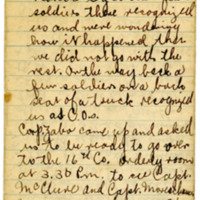 soldiers there recognized
us and were wondering
how it happened that
we did not go with the
rest. On the way back a
few soldiers on a back
seat of a truck recognized
us as C.Os.
Corp. Zabo came up and asked
us to be ready to go over
to the 16th Co. Orderly room
at 3.30 P.m. to see Capt.
McClure and Capt.